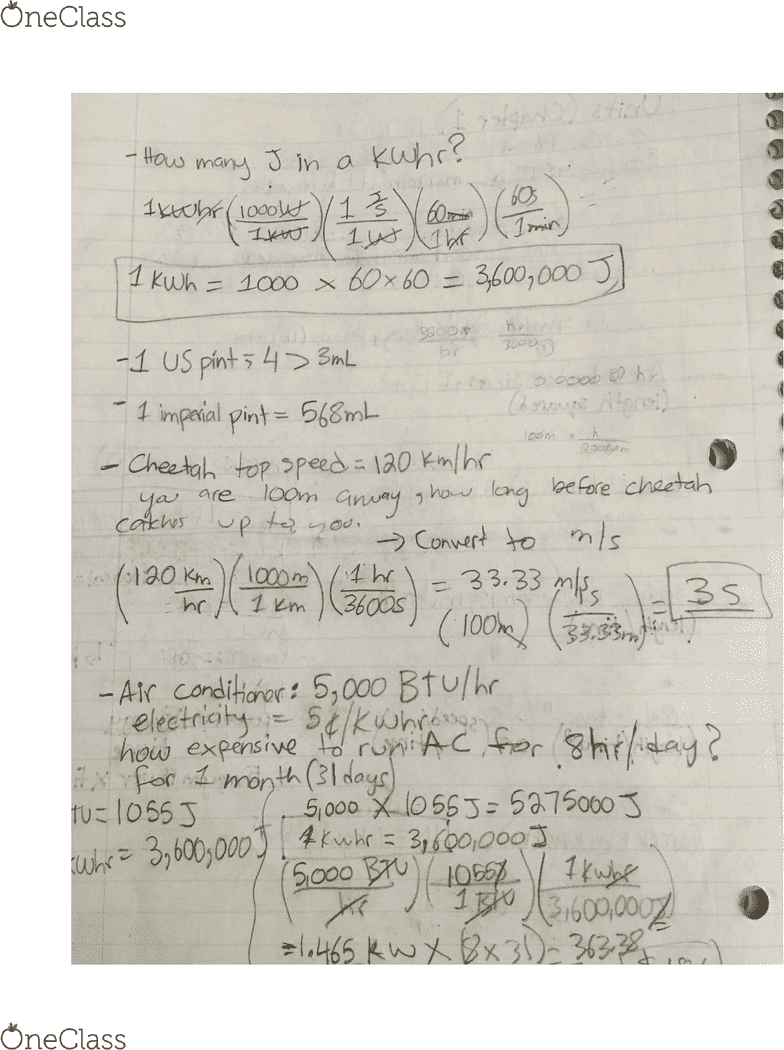 OneClass
- How many J in a kWhr?
1kWhr (1000W/1kW) (1 J/s/1W) (60min/1hr) (60s/1min) =
1 kWh = 1000 × 60×60 = 3,600,000 J
- 1 US pint = 473mL
- 1 imperial pint = 568mL
- Cheetah top speed = 120 km/hr
you are 100m away, how long before cheetah
catches up to you.
→ Convert to m/s
(120 km/hr) (1000m/1 km) (1 hr/3600s) = 33.33 m/s
(100m) (s/33.33m) = 3s
- Air conditioner: 5,000 Btu/hr
electricity = 5¢/kWhr
how expensive to run AC for 8hr/day?
for 1 month (31 days)
TU = 1055J
kWhr = 3,600,000J
5,000 × 1055J = 5275000J
1kWhr = 3,600,000J
(5,000 BTU/hr) (1055J/1 BTU) (1kWhr/3,600,000J) =
=1.465 kW × (8×31) = 363.38
OneClass